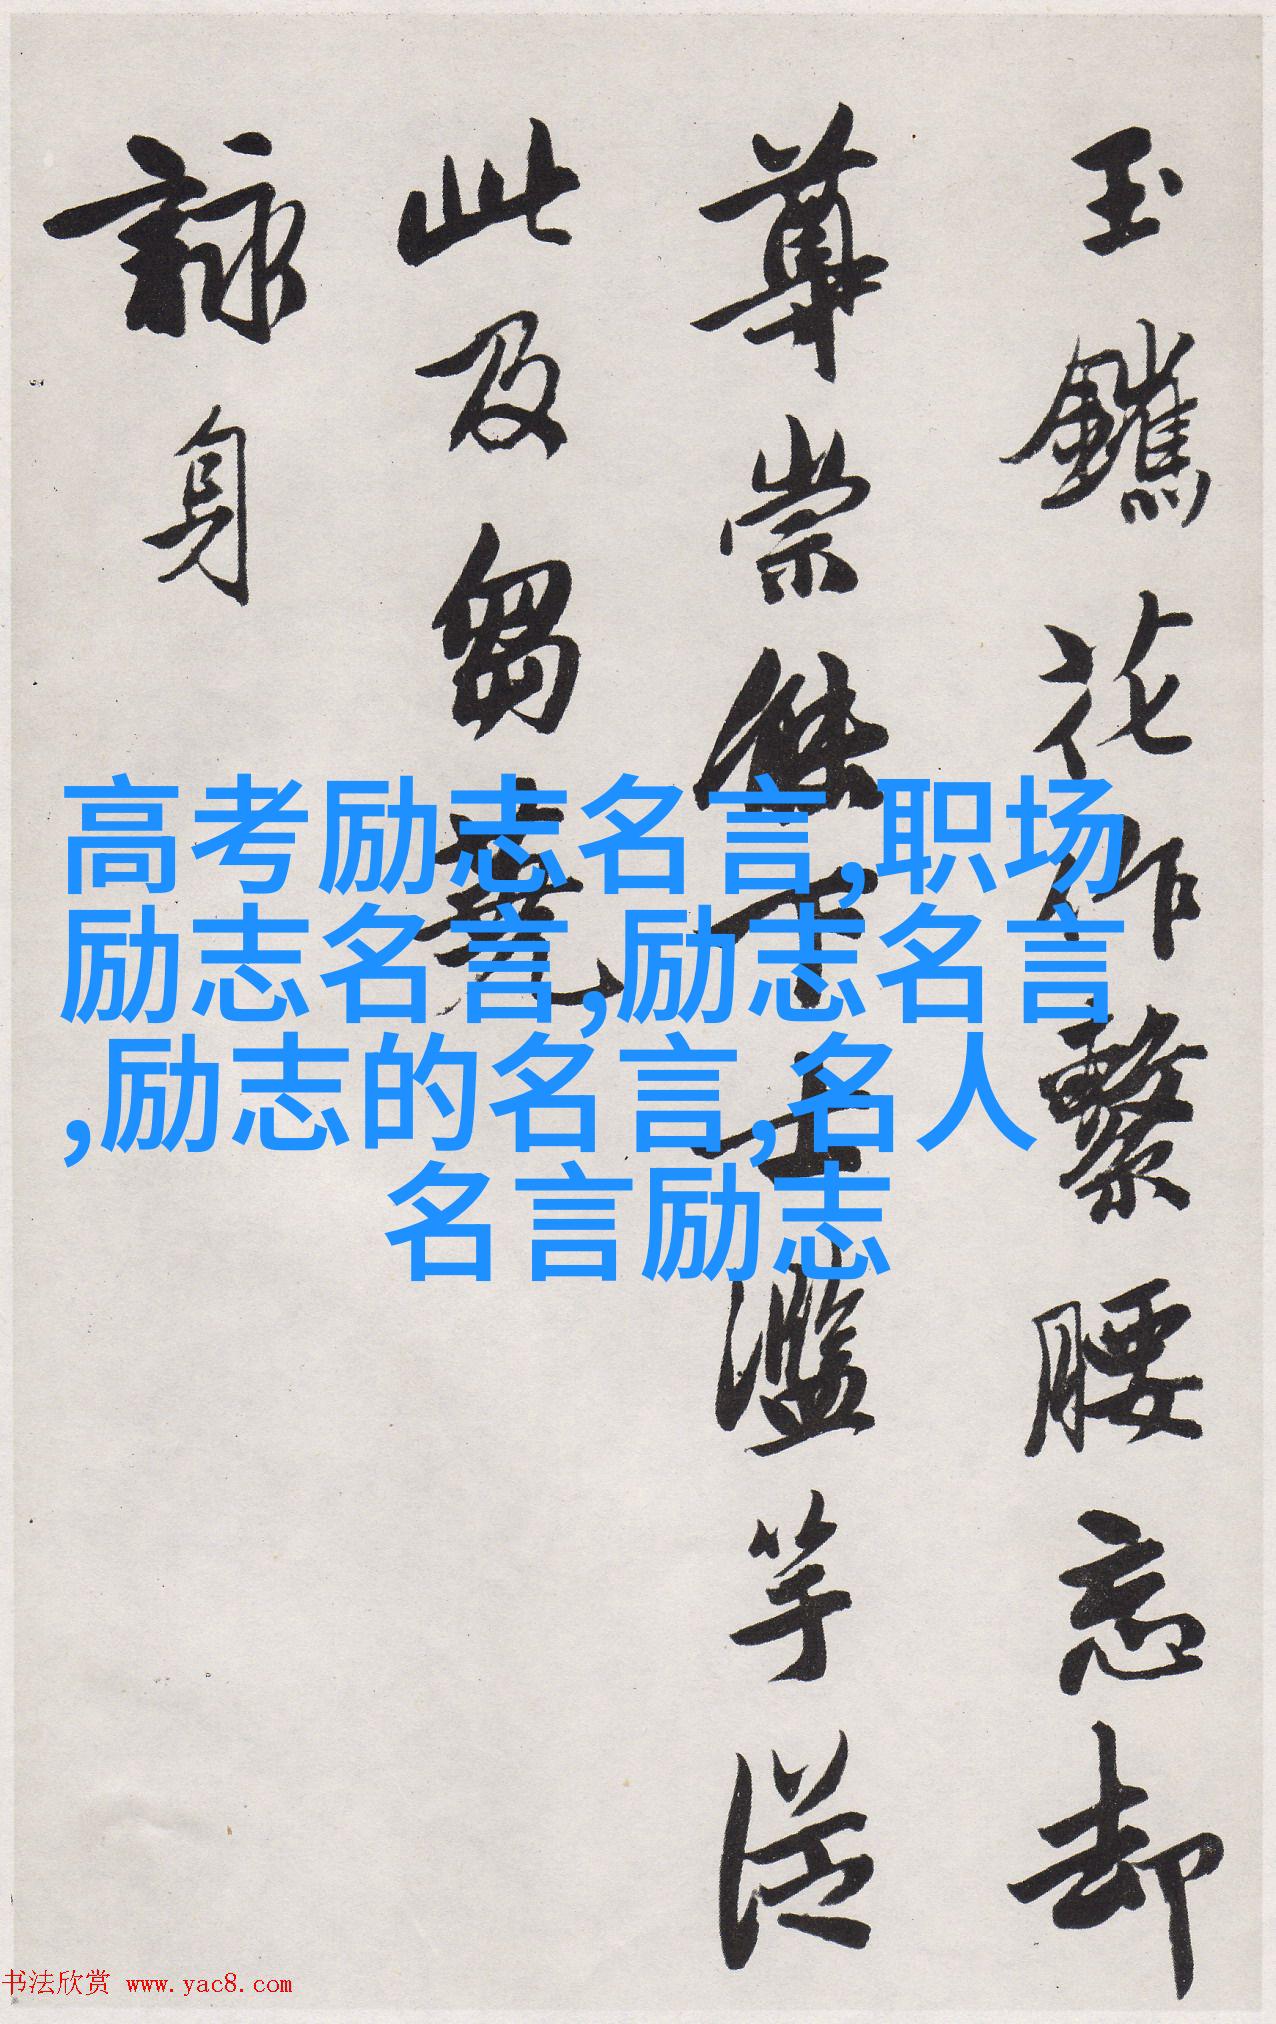 玉鑣花作繫腰忘却
尊崇傑下士濫竽從
此及芻蕘
詠身
高考励志名言,职场
励志名言,励志名言
,励志的名言,名人
名言励志
书法欣赏 www.yac8.com